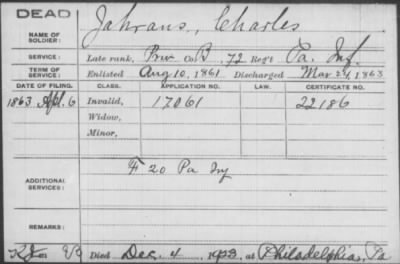 DEAD
NAME OF SOLDIER: Jahraus, Charles
SERVICE: Late rank, Priv Co. B, 72 Reg't Pa. Inf.
TERM OF SERVICE: Enlisted Aug 10, 1861 Discharged Mar 24, 1863
DATE OF FILING. CLASS. APPLICATION NO. LAW. CERTIFICATE NO.
1863 Apl. 6 Invalid, 17061 22186
Widow,
Minor,
ADDITIONAL SERVICES: F 20 Pa Inf
REMARKS:
Died Dec. 4, at Philadelphia, Pa